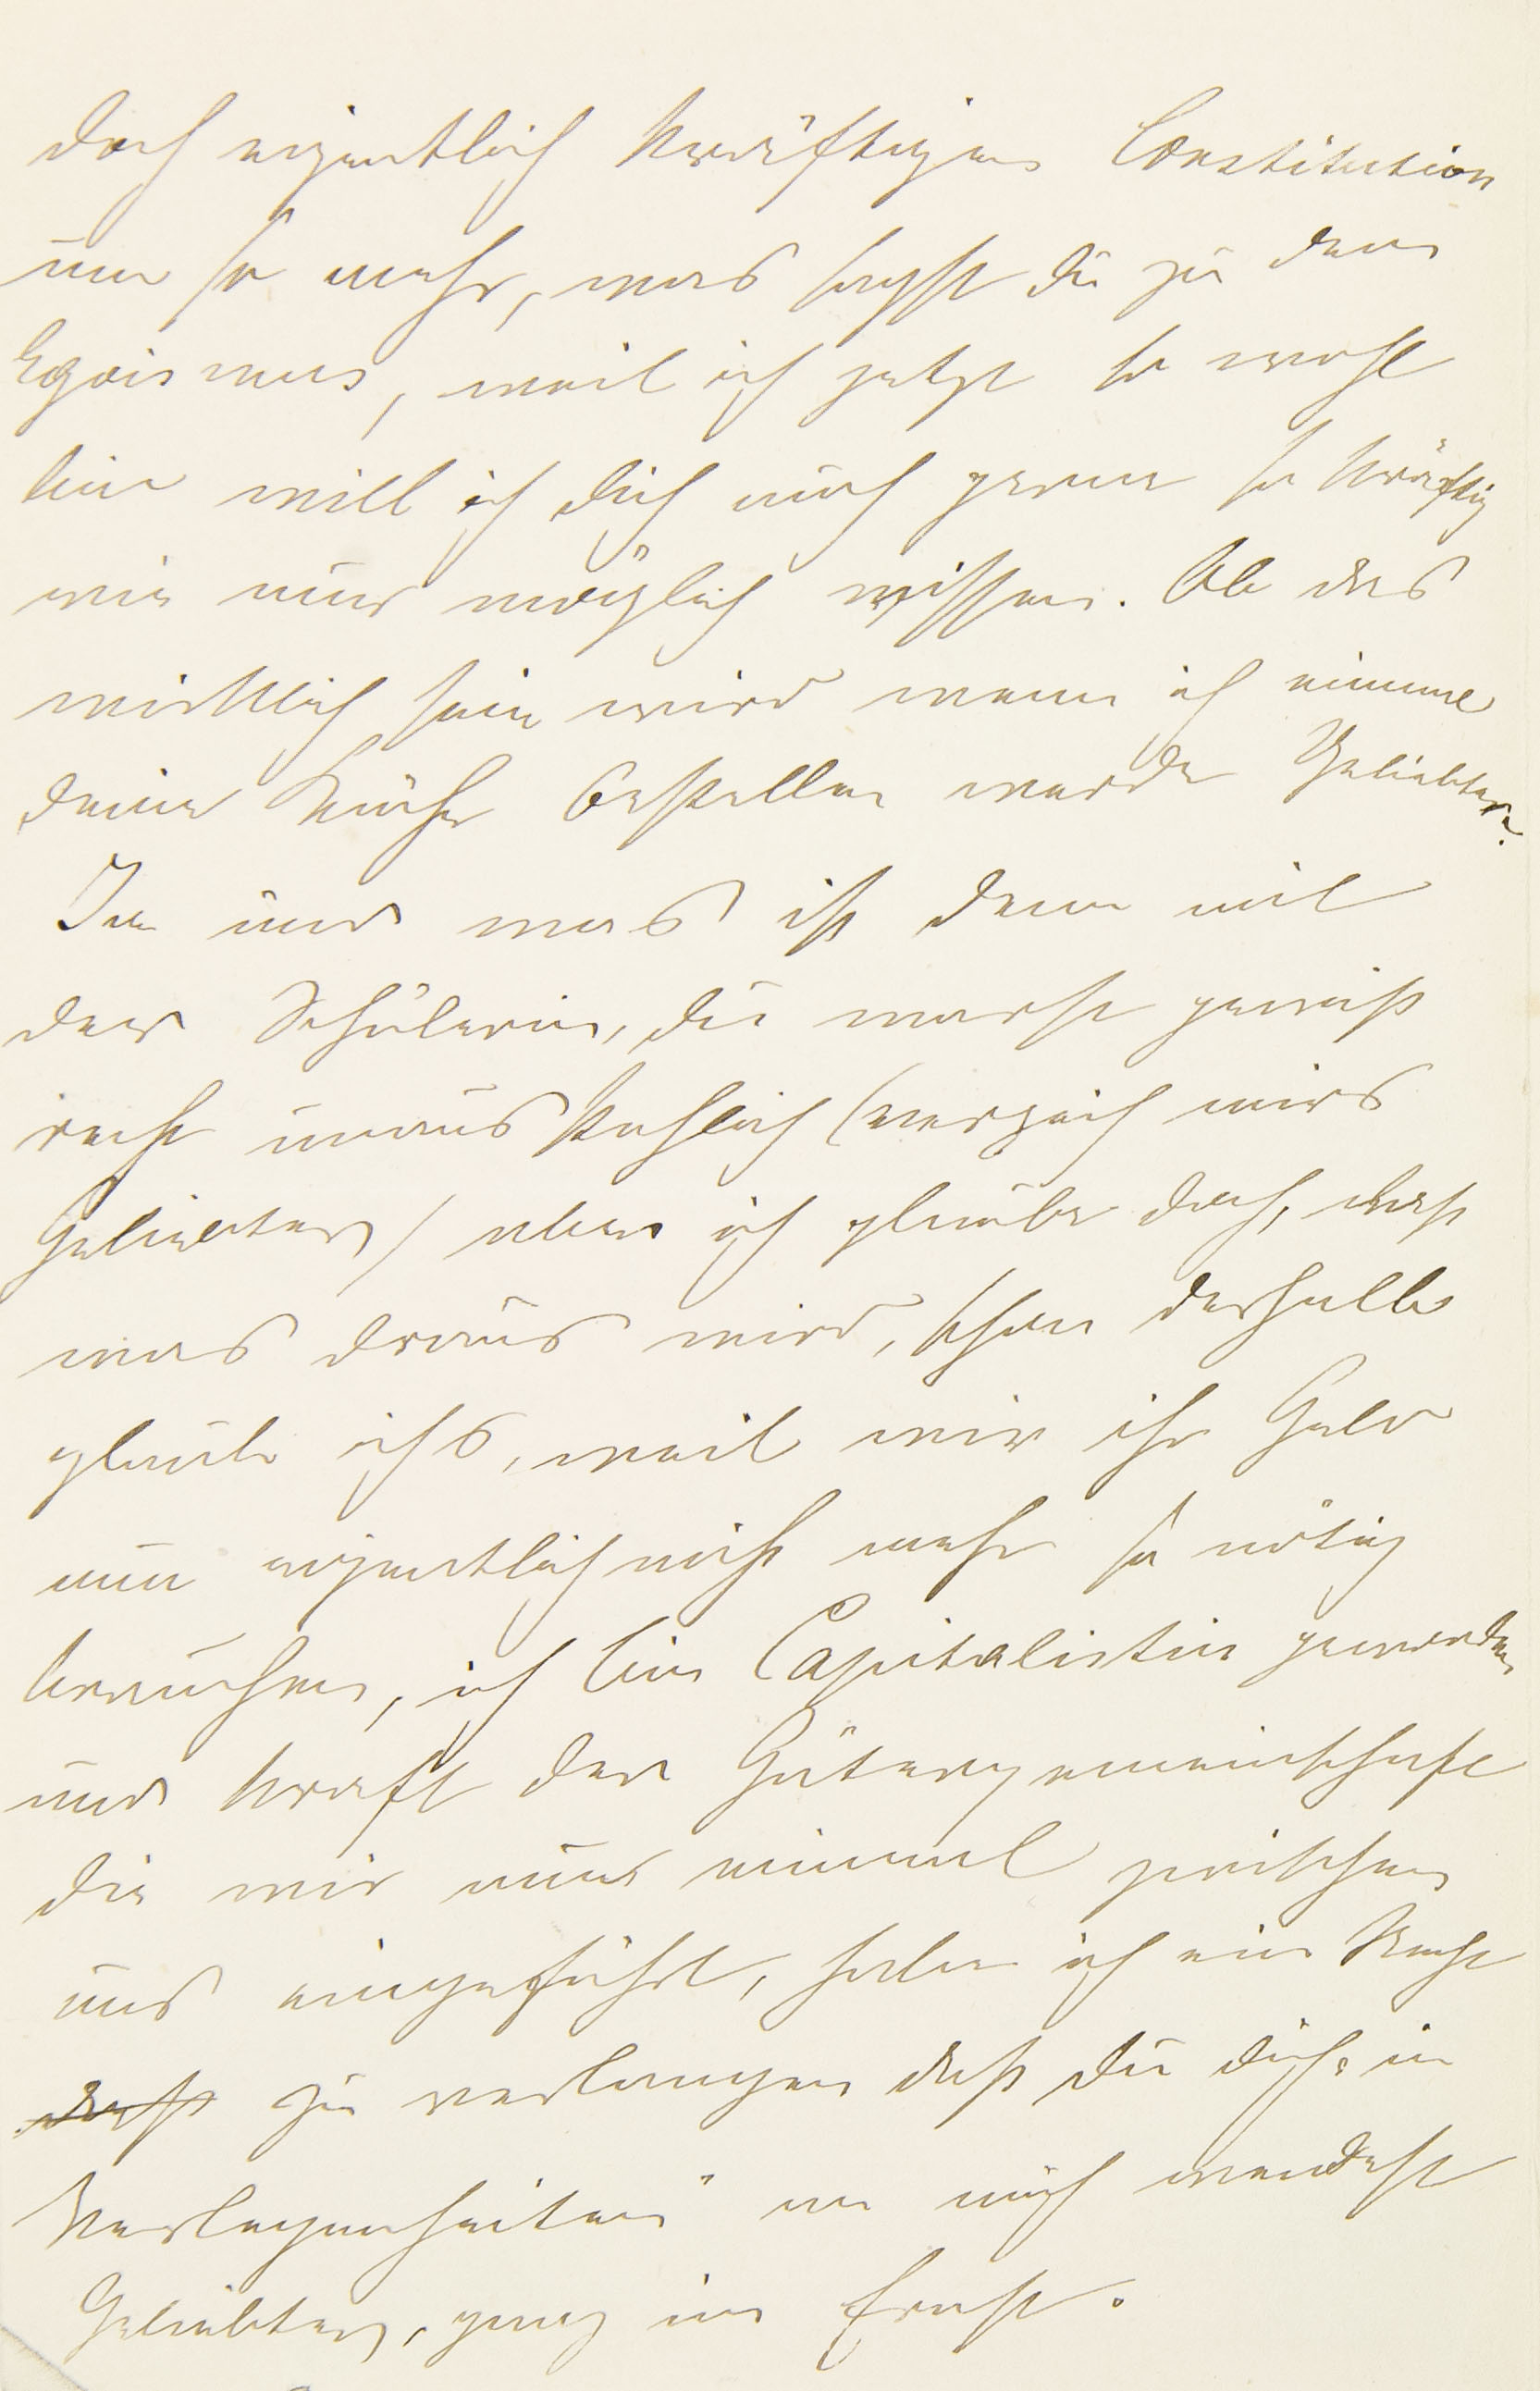 doch eigentlich kräftigen Constitution
um so mehr, was sagst du zu dem
Egoismus, weil ich jetzt so wohl
bin will ich dich auch gerne so kräftig
wie nur möglich wissen. Ob das
wirklich sein wird wenn ich einmal
deine Küche bestellen werde Geliebter?
Ja und was ist denn mit
der Schülerin, du warst gewiß
recht unausstehlich (verzeih mirs
Geliebter) aber ich glaube doch, daß
was draus wird, schon deshalb
glaub ichs, weil wir ihr Geld
nun eigentlich nicht mehr so nötig
brauchen, ich bin Capitalistin geworden
und kraft der Gütergemeinschaft
die wir nun einmal zwischen
uns eingeführt, habe ich ein Recht
daß zu verlangen daß du dich "in
Verlegenheiten" an mich wendest
Geliebter, ganz im Ernst.